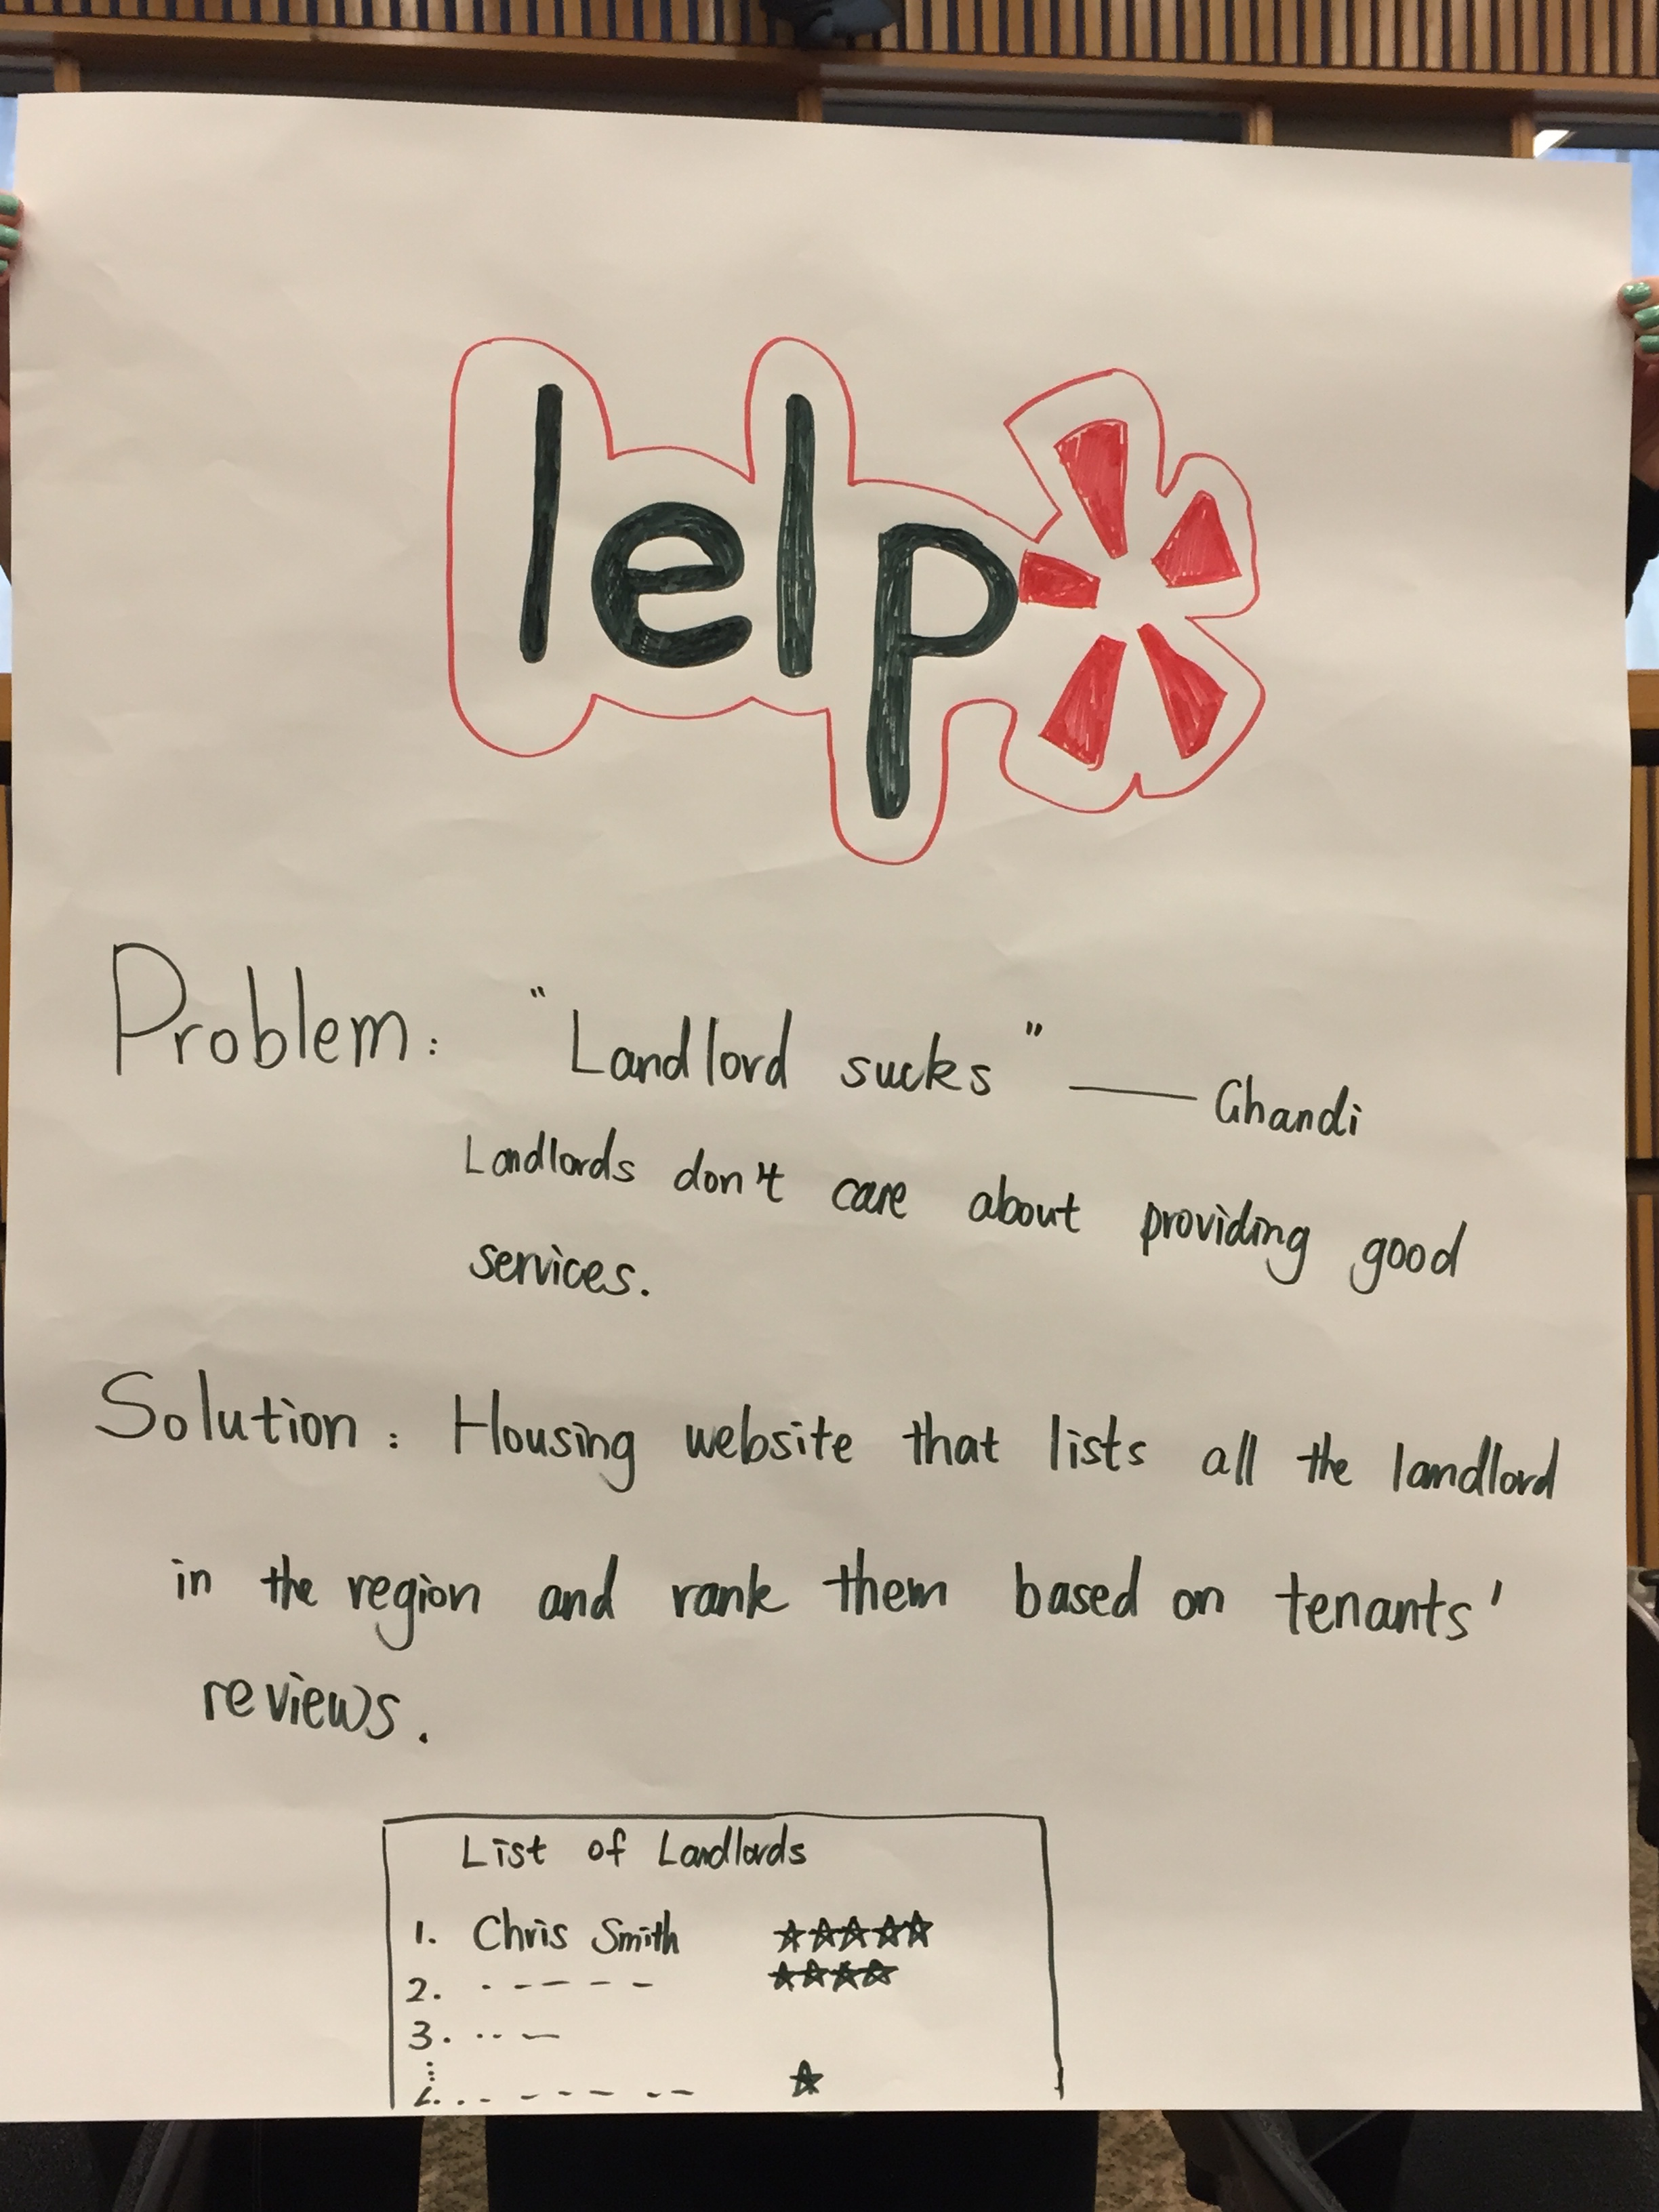 lelp
Problem: "Landlord sucks" — Ghandi
Landlords don't care about providing good
services.
Solution: Housing website that lists all the landlord
in the region and rank them based on tenants'
reviews.
List of Landlords
1. Chris Smith ★★★★★
2. - - - - - ★★★★
3. - - -
⋮ ★